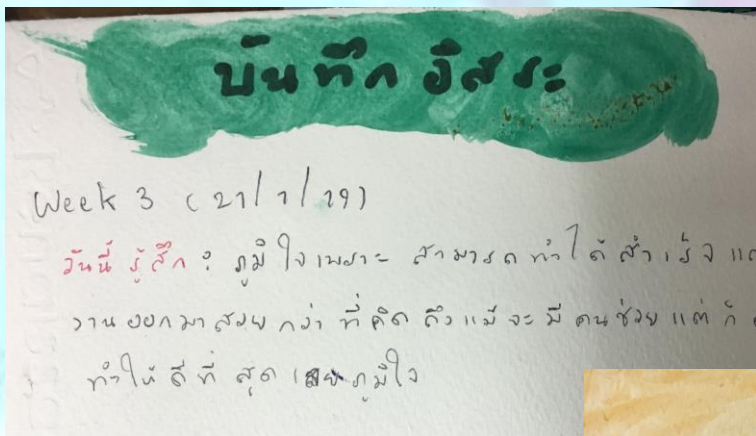 บันทึกอิสระ
Week 3 (21/1/19)
วันนี้รู้สึก : ภูมิใจเพราะ สามารถทำได้สำเร็จ
งานออกมาสวยกว่าที่คิด ถึงแม้จะมีคนช่วยแต่ก็
ทำให้ดีที่สุด เลยภูมิใจ